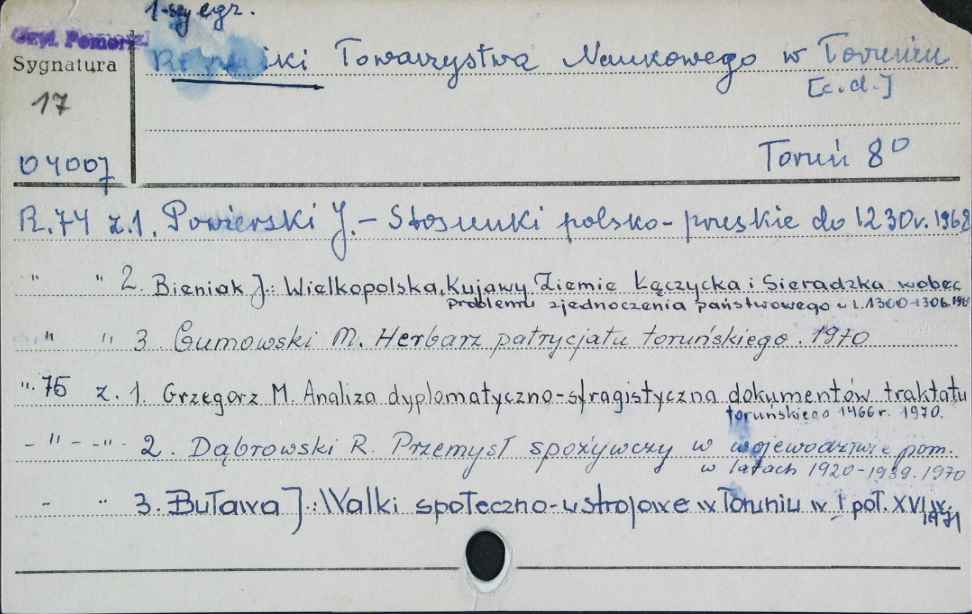 1-szy egz.
Czyt. Pomorz.
Sygnatura
17
04007
Roczniki Towarzystwa Naukowego w Toruniu
[c.d.]
Toruń 8°
R.74 z.1. Powierski J. - Stosunki polsko-pruskie do 1230r. 1968
" " 2. Bieniak J.: Wielkopolska, Kujawy Ziemie Łęczycka i Sieradzka wobec
problemu zjednoczenia państwowego w l. 1300-1306.
" " 3 Gumowski M. Herbarz patrycjatu toruńskiego. 1970
". 75 z. 1. Grzegorz M. Analiza dyplomatyczno-sfragistyczna dokumentów traktatu
toruńskiego 1466r. 1970.
- " - -"- 2. Dąbrowski R. Przemysł spożywczy w województwie pom.
w latach 1920-1939. 1970
- " 3. Buława J.: Walki społeczno-ustrojowe w Toruniu w I poł. XVI w.
1971